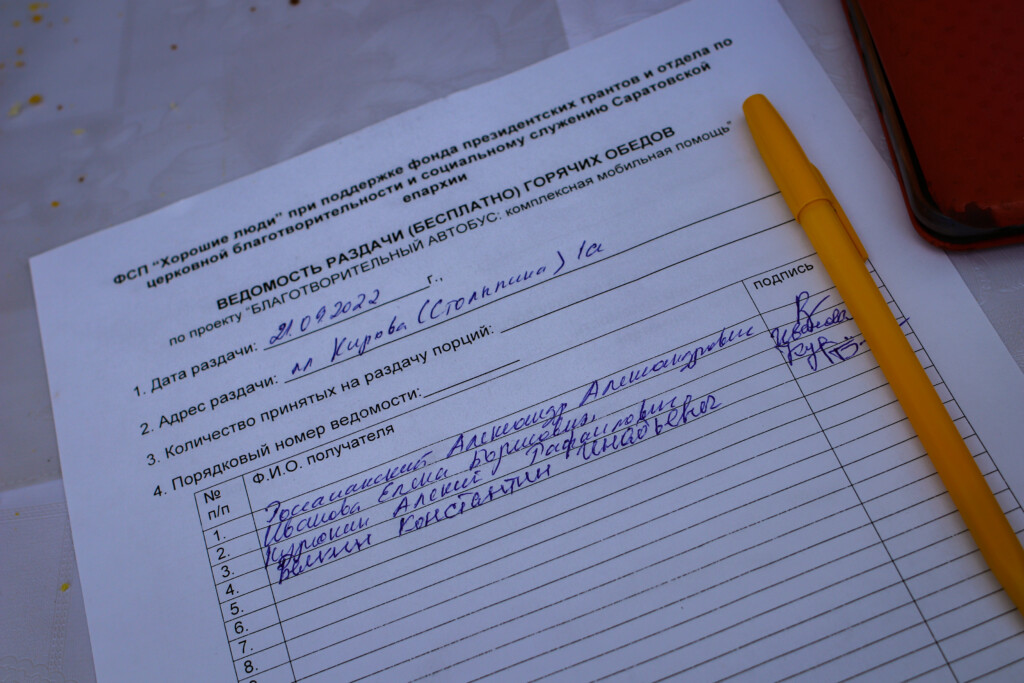 ФСП "Хорошие люди" при поддержке фонда президентских грантов и отдела по
церковной благотворительности и социальному служению Саратовской
епархии
ВЕДОМОСТЬ РАЗДАЧИ (БЕСПЛАТНО) ГОРЯЧИХ ОБЕДОВ
по проекту "БЛАГОТВОРИТЕЛЬНЫЙ АВТОБУС: комплексная мобильная помощь"
1. Дата раздачи: 21.09.2022 г.,
2. Адрес раздачи: пл Кирова (Столыпина) 1а
3. Количество принятых на раздачу порций:
4. Порядковый номер ведомости:
№ п/п Ф.И.О. получателя подпись
1. Александр Александрович
2. Иванова Елена Борисовна Иванова
3. Алексей Рафаилович
4. Константин Геннадьевич
5.
6.
7.
8.